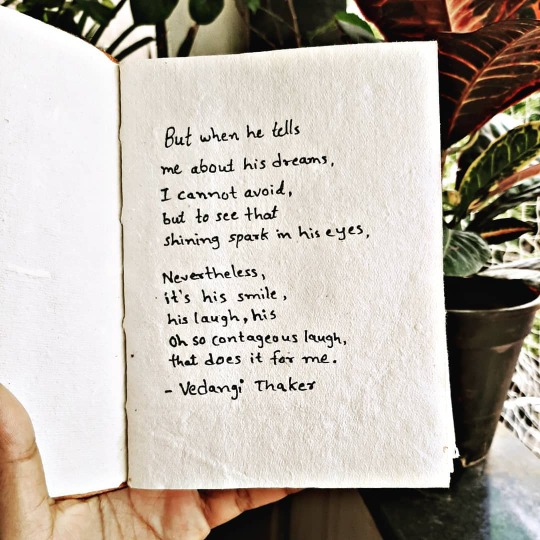 But when he tells
me about his dreams,
I cannot avoid,
but to see that
shining spark in his eyes,
Nevertheless,
it's his smile,
his laugh, his
oh so contageous laugh,
that does it for me.
- Vedangi Thaker